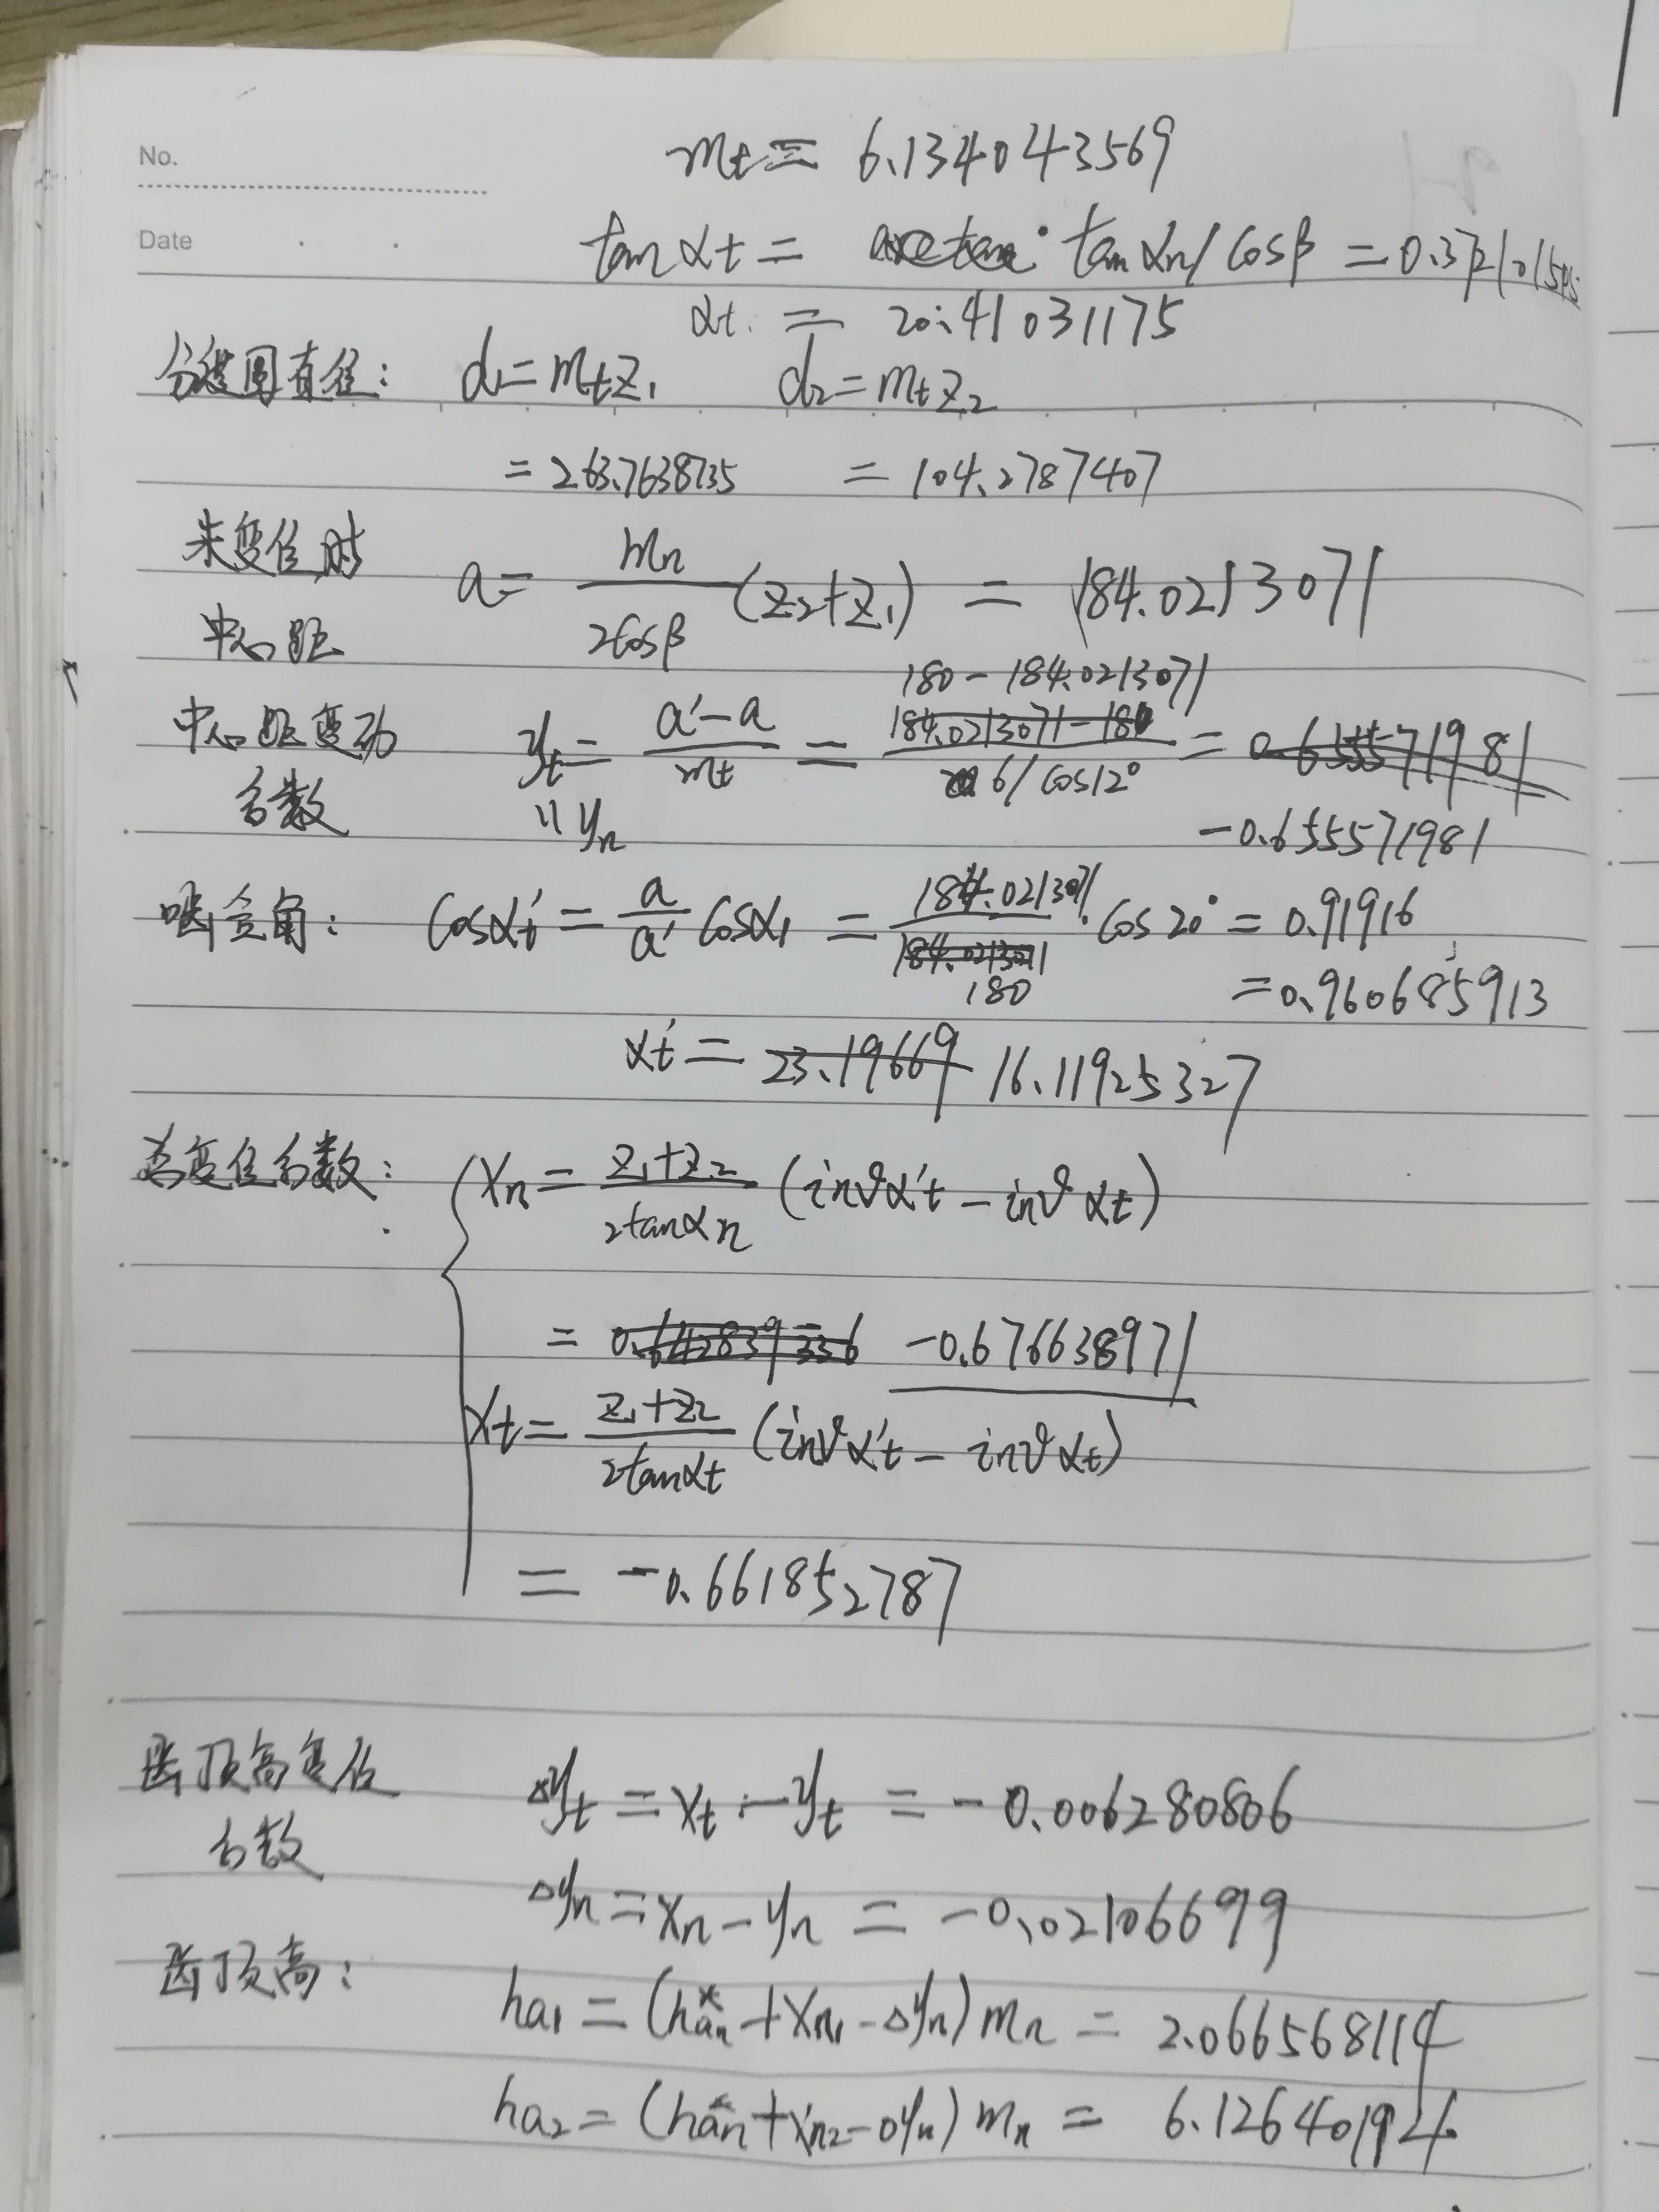 No.
Date
mt = 6.134043569
tan αt = tan αn / cosβ = 0.3721015
αt = 20.41031175
分度圆直径: d1 = mtz1 d2 = mtz2
= 263.7638735 = 104.2787407
未变位时中心距 a = mn/2cosβ (z2+z1) = 184.0213071
中心距变动系数 yt = a'-a/mt = 180-184.0213071 / 6/cos12° = -0.655571981
"yn
啮合角: cosαt' = a/a' cosαt = 184.0213071/180 · cos20° = 0.91916
= 0.960685913
αt' = 23.19669 16.11925327
总变位系数: xn = z1+z2/2tanαn (invα't - invαt)
= 0.642839336 -0.676638971
xt = z1+z2/2tanαt (invα't - invαt)
= -0.661852787
齿顶高变位系数 Δyt = xt - yt = -0.006280806
Δyn = xn - yn = -0.02106699
齿顶高: ha1 = (han* + xn1 - Δyn) mn = 2.066568114
ha2 = (han* + xn2 - Δyn) mn = 6.1264019